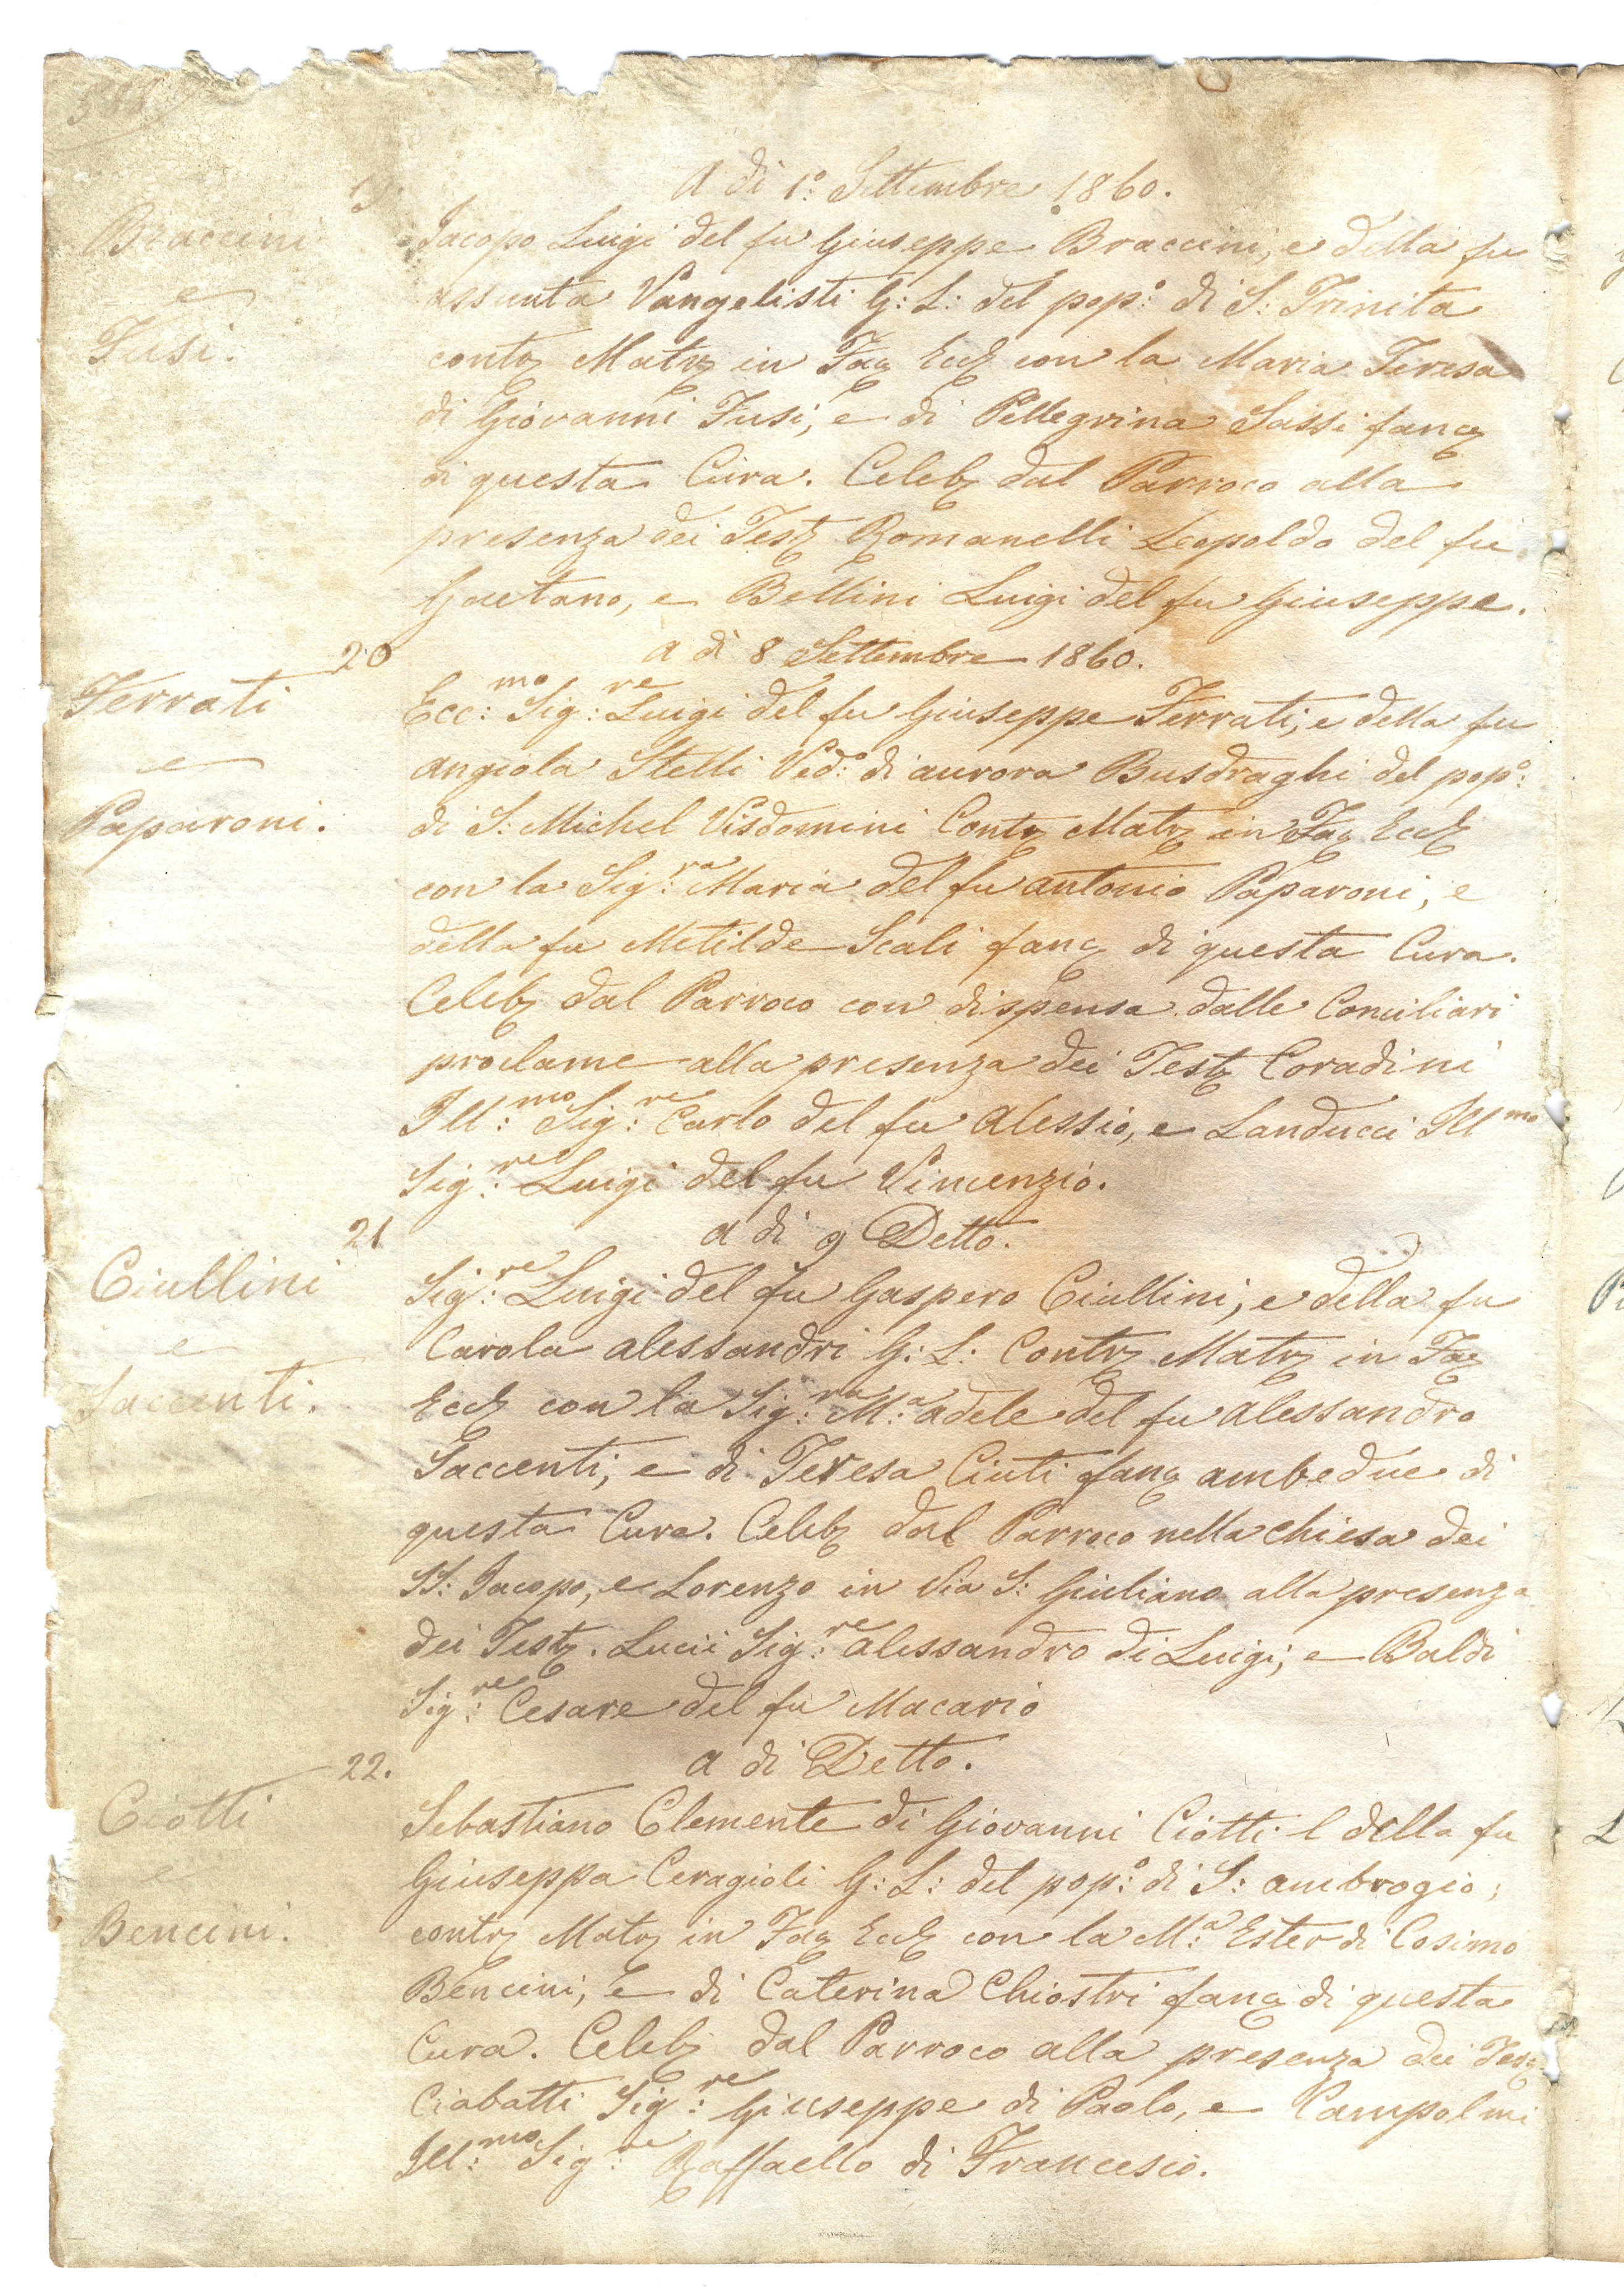 A dì 1.° Settembre 1860.
Braccini
e
Fusi.
Jacopo Luigi del fu Giuseppe Braccini, e della fu
Assunta Vangelisti G: L: del pop:° di S: Trinita
contr Matr in Fac Eccl con la Maria Teresa
di Giovanni Fusi, e di Pellegrina Sassi fanc
di questa Cura. Celeb dal Parroco alla
presenza dei Test Romanelli Leopoldo del fu
Gaetano, e Bellini Luigi del fu Giuseppe.
20
A dì 8 Settembre 1860.
Ferrati
e
Paparoni.
Ecc:mo Sig:re Luigi del fu Giuseppe Ferrati, e della fu
Angiola Stelli Ved:° di Aurora Busdraghi del pop:°
di S: Michel Visdomini Contr Matr in Fac Eccl
con la Sig:ra Maria del fu Antonio Paparoni, e
della fu Metilde Scali fanc di questa Cura.
Celeb dal Parroco con dispensa dalle Conciliari
proclame alla presenza dei Test Coradini
Ill:mo Sig:re Carlo del fu Alessio, e Landucci Ill mo
Sig:re Luigi del fu Vincenzio.
21
A dì 9 Detto.
Ciullini
e
Saccenti.
Sig:re Luigi del fu Gaspero Ciullini, e della fu
Carola Alessandri G: L: Contr Matr in Fac
Eccl con la Sig:ra M:a Adele del fu Alessandro
Saccenti, e di Teresa Ciuti fanc ambedue di
questa Cura. Celeb dal Parroco nella Chiesa dei
SS: Jacopo, e Lorenzo in Via S: Giuliano alla presenza
dei Test. Lucii Sig:re Alessandro di Luigi, e Baldi
Sig:re Cesare del fu Macario
22.
A dì Detto.
Ciotti
e
Bencini.
Sebastiano Clemente di Giovanni Ciotti e della fu
Giuseppa Ceragioli G: L: del pop:° di S: Ambrogio;
contr Matr in Fac Eccl con la M:a Ester di Cosimo
Bencini, e di Caterina Chiostri fanc di questa
Cura. Celeb dal Parroco alla presenza dei Test
Ciabatti Sig:re Giuseppe di Paolo, e Campolmi
Ill:mo Sig:re Raffaello di Francesco.